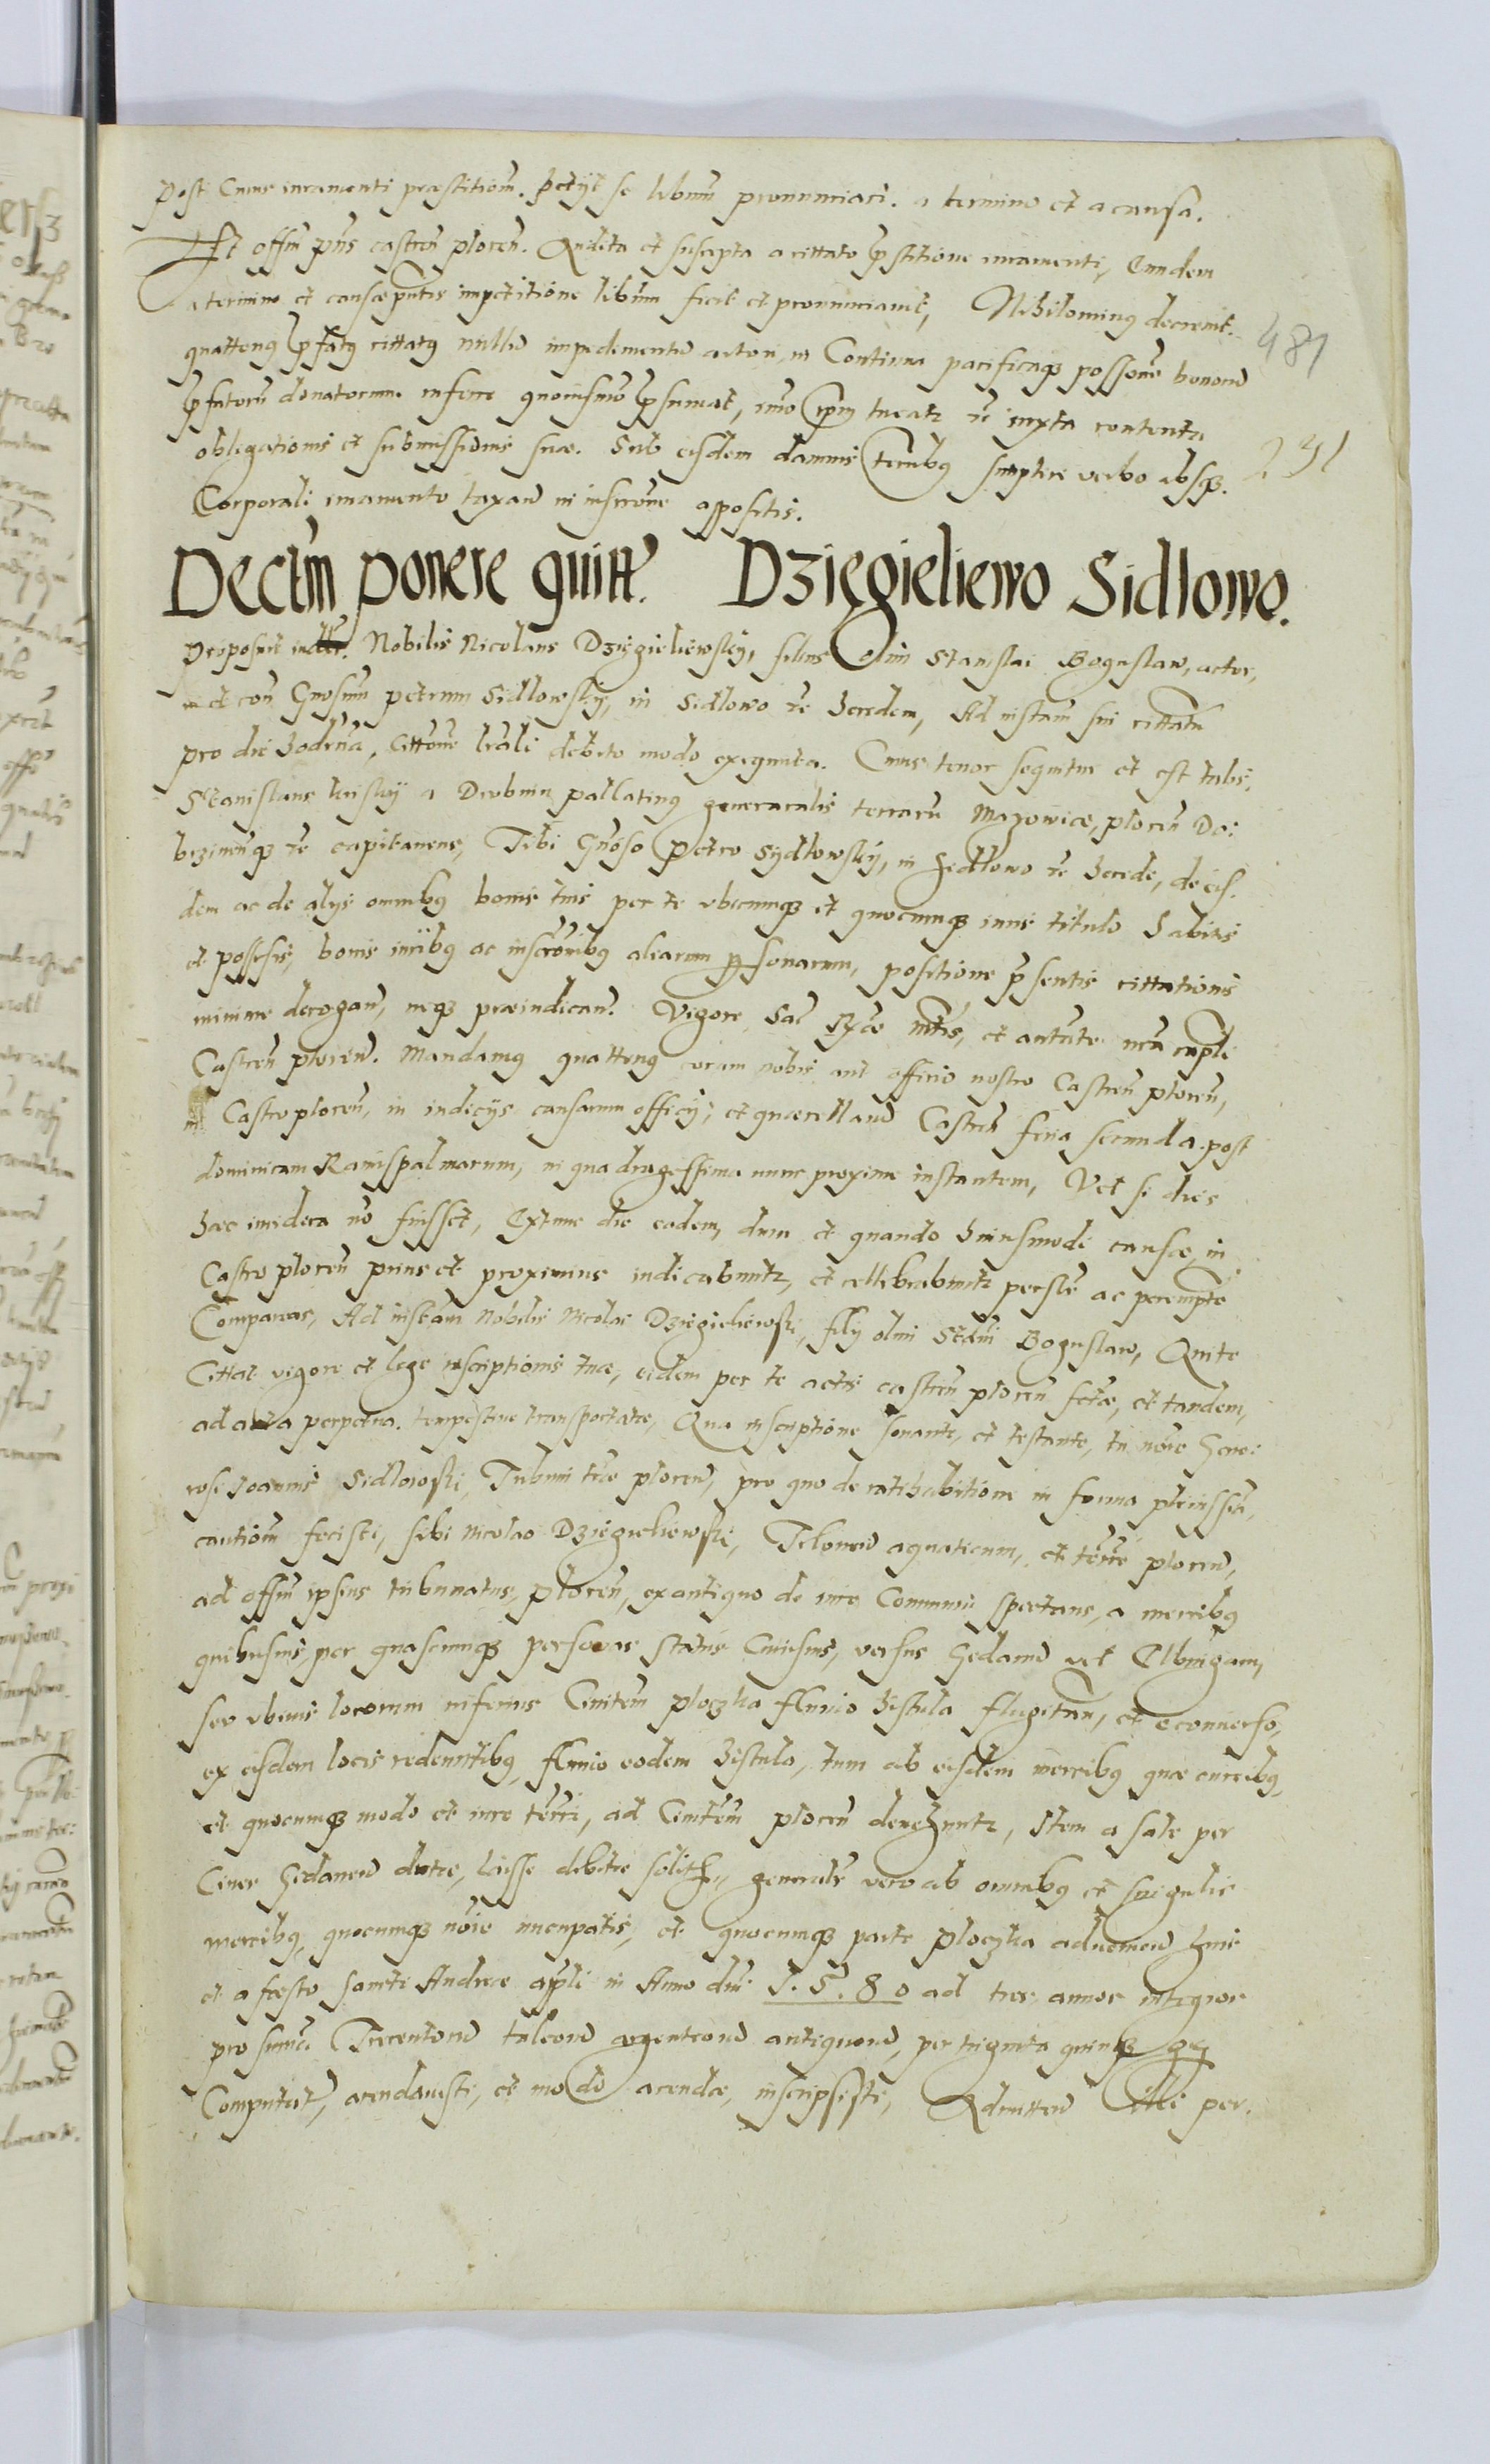 Post Cuius iuramenti praestitiom. petijt se liberum pronunciari. a termino et a causa.
Et offm pñs castren plocen. Audita et suscepta a cittato pstitione iuramenti, Eundem
a termino et causae pntis impetitione liberum fecit et pronunciavit, Nihilominus decrevit.
quattenus pfatus cittatus nullu impedimentu actori, in Continua pacificaq possione bonoru
pfatoru donatorum inferre quovismodo psumat, imo ipm tueatr re iuxta contenta
obligationis et submissionis suae. Sub eisdem damnis terribus simplici verbo absq.
Corporali iuramento taxand in inscrone appositis.
481
241
Dectm ponere quitt. Dziegieliewo Sidlowo.
Proposuit Nobilis Nicolaus Dziegieliewsky, filius olim Stanislai Boguslaw, actor,
et con Gnosum petrum Sidlowsky, in Sidlowo re heredem, Ad instam sui cittatu
pro die hodierna, cittone lrali debito modo exequuta. Cuius tenor sequitur et est talis.
Stanislaus kriskij a Drobnin pallatinus generaralis terraru Mazowiae, plocen Do:
brzinenq re capitaneus, Tibi Gnoso Petro Sydlowsky, in Sedlowo re herede, de eis:
dem ac de alijs omnibus bonis tuis per te ubicumq et quocumq iuris titulo habitis
et possessis, bonis iuribus ac inscronibus aliarum personarum, positione psentis cittationis
minime derogan, neq praeiudican. Vigore Sac Rgae mtis, et autte nra caple
Castren plocen. Mandamus quattenus coram nobis aut officio nostro Castren plocen,
in Castro plocen, in iudicijs causarum officij, et quaerellaru Castren feria secunda post
dominicam Ramispalmarum, in quadragessima nunc proxime instantem, Vel si dies
haec iuridica no fuisset, Extunc die eadem, dum et quando huiusmodi causae in
Castro plocen prius et proximius iudicabuntr, et cellebrabuntr persle ac perempte
Compareas, Ad instam Nobilis Nicolai Dziegieliewski, filij olim Stani Boguslaw, Qui te
Cittat vigore et lege inscriptionis tuae, eidem per te actis castren plocen fctae, et tandem,
ad acta perpetua tempestive transportatae, Qua inscriptione sonante, et testante, tu noie Gene:
rosi Joannis Sidlowski, Tribuni trae plocen, pro quo de ratihabitione in forma plenissia,
cautiom fecisti, sibi Nicolao Dziegieliewski, Teloneu aquaticum, et terre plocen,
ad offm ipsius tribunatus, plocen, ex antiquo de iure Communi spectans, a mercibus
quibusvis per quascumq personas status Cuiusvis, versus Gedanu vel Elbingam,
seu ubivis locorum inferius Civitem ploczka fluvio Vistula flugitan, et e converso,
ex eisdem locis redeuntibus, fluvio eodem Vistula, tum ab eisdem mercibus quae curribus,
et quocumq modo et iure terri, ad Civitem plocen devehuntr, Item a sale per
Cives Gedanen dutie, laisse debitis solitq, generalr vero ab omnibus et singulis
mercibus, quocumq noie nuncupatis, et quocumq parte Ploczka advenien huic
et a festo sancti Andreae appli in Anno dni 1.5.8 0 ad tres annos integros
pro suma. Trecentoru taleroru argenteoru antiquoru, per triginta quinq gr
Computat, arendavisti, et modo arendae, inscripsisti, Admitten illi per.